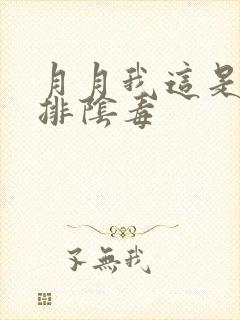 月月我這是
排陰毒
不無我